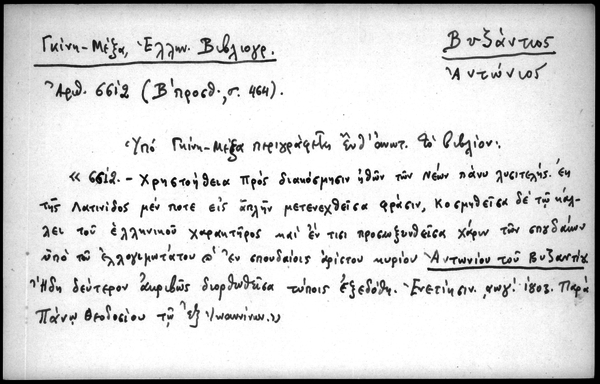 Γκίνη-Μέξα, Ἑλλην. Βιβλιογρ.
Βυζάντιος
Ἀντώνιος
Ἀριθ. 6612 (Β' προσθ., σ. 464).
Ὑπό Γκίνη-Μέξα περιγράφεται ἔνθ' ἀνωτ. τό βιβλίον:
« 6612.- Χρηστοήθεια πρός διακόσμησιν ἠθῶν τῶν Νέων πάνυ λυσιτελής. Ἐκ
τῆς Λατινίδος μέν ποτε εἰς ἁπλῆν μετενεχθεῖσα φράσιν, κοσμηθεῖσα δέ τῷ κάλ-
λει τοῦ ἑλληνικοῦ χαρακτῆρος καί ἔν τισι προσαυξυνθεῖσα χάριν τῶν σπουδαίων
ὑπό τοῦ ἐλλογιμωτάτου ἐν σπουδαίοις ἀρίστου κυρίου Ἀντωνίου τοῦ Βυζαντίου
Ἤδη δεύτερον ἀκριβῶς διορθωθεῖσα τύποις ἐξεδόθη. Ἐνετίησιν. Παρά
Πάνῳ Θεοδοσίου τῷ ἐξ Ἰωαννίνων.»